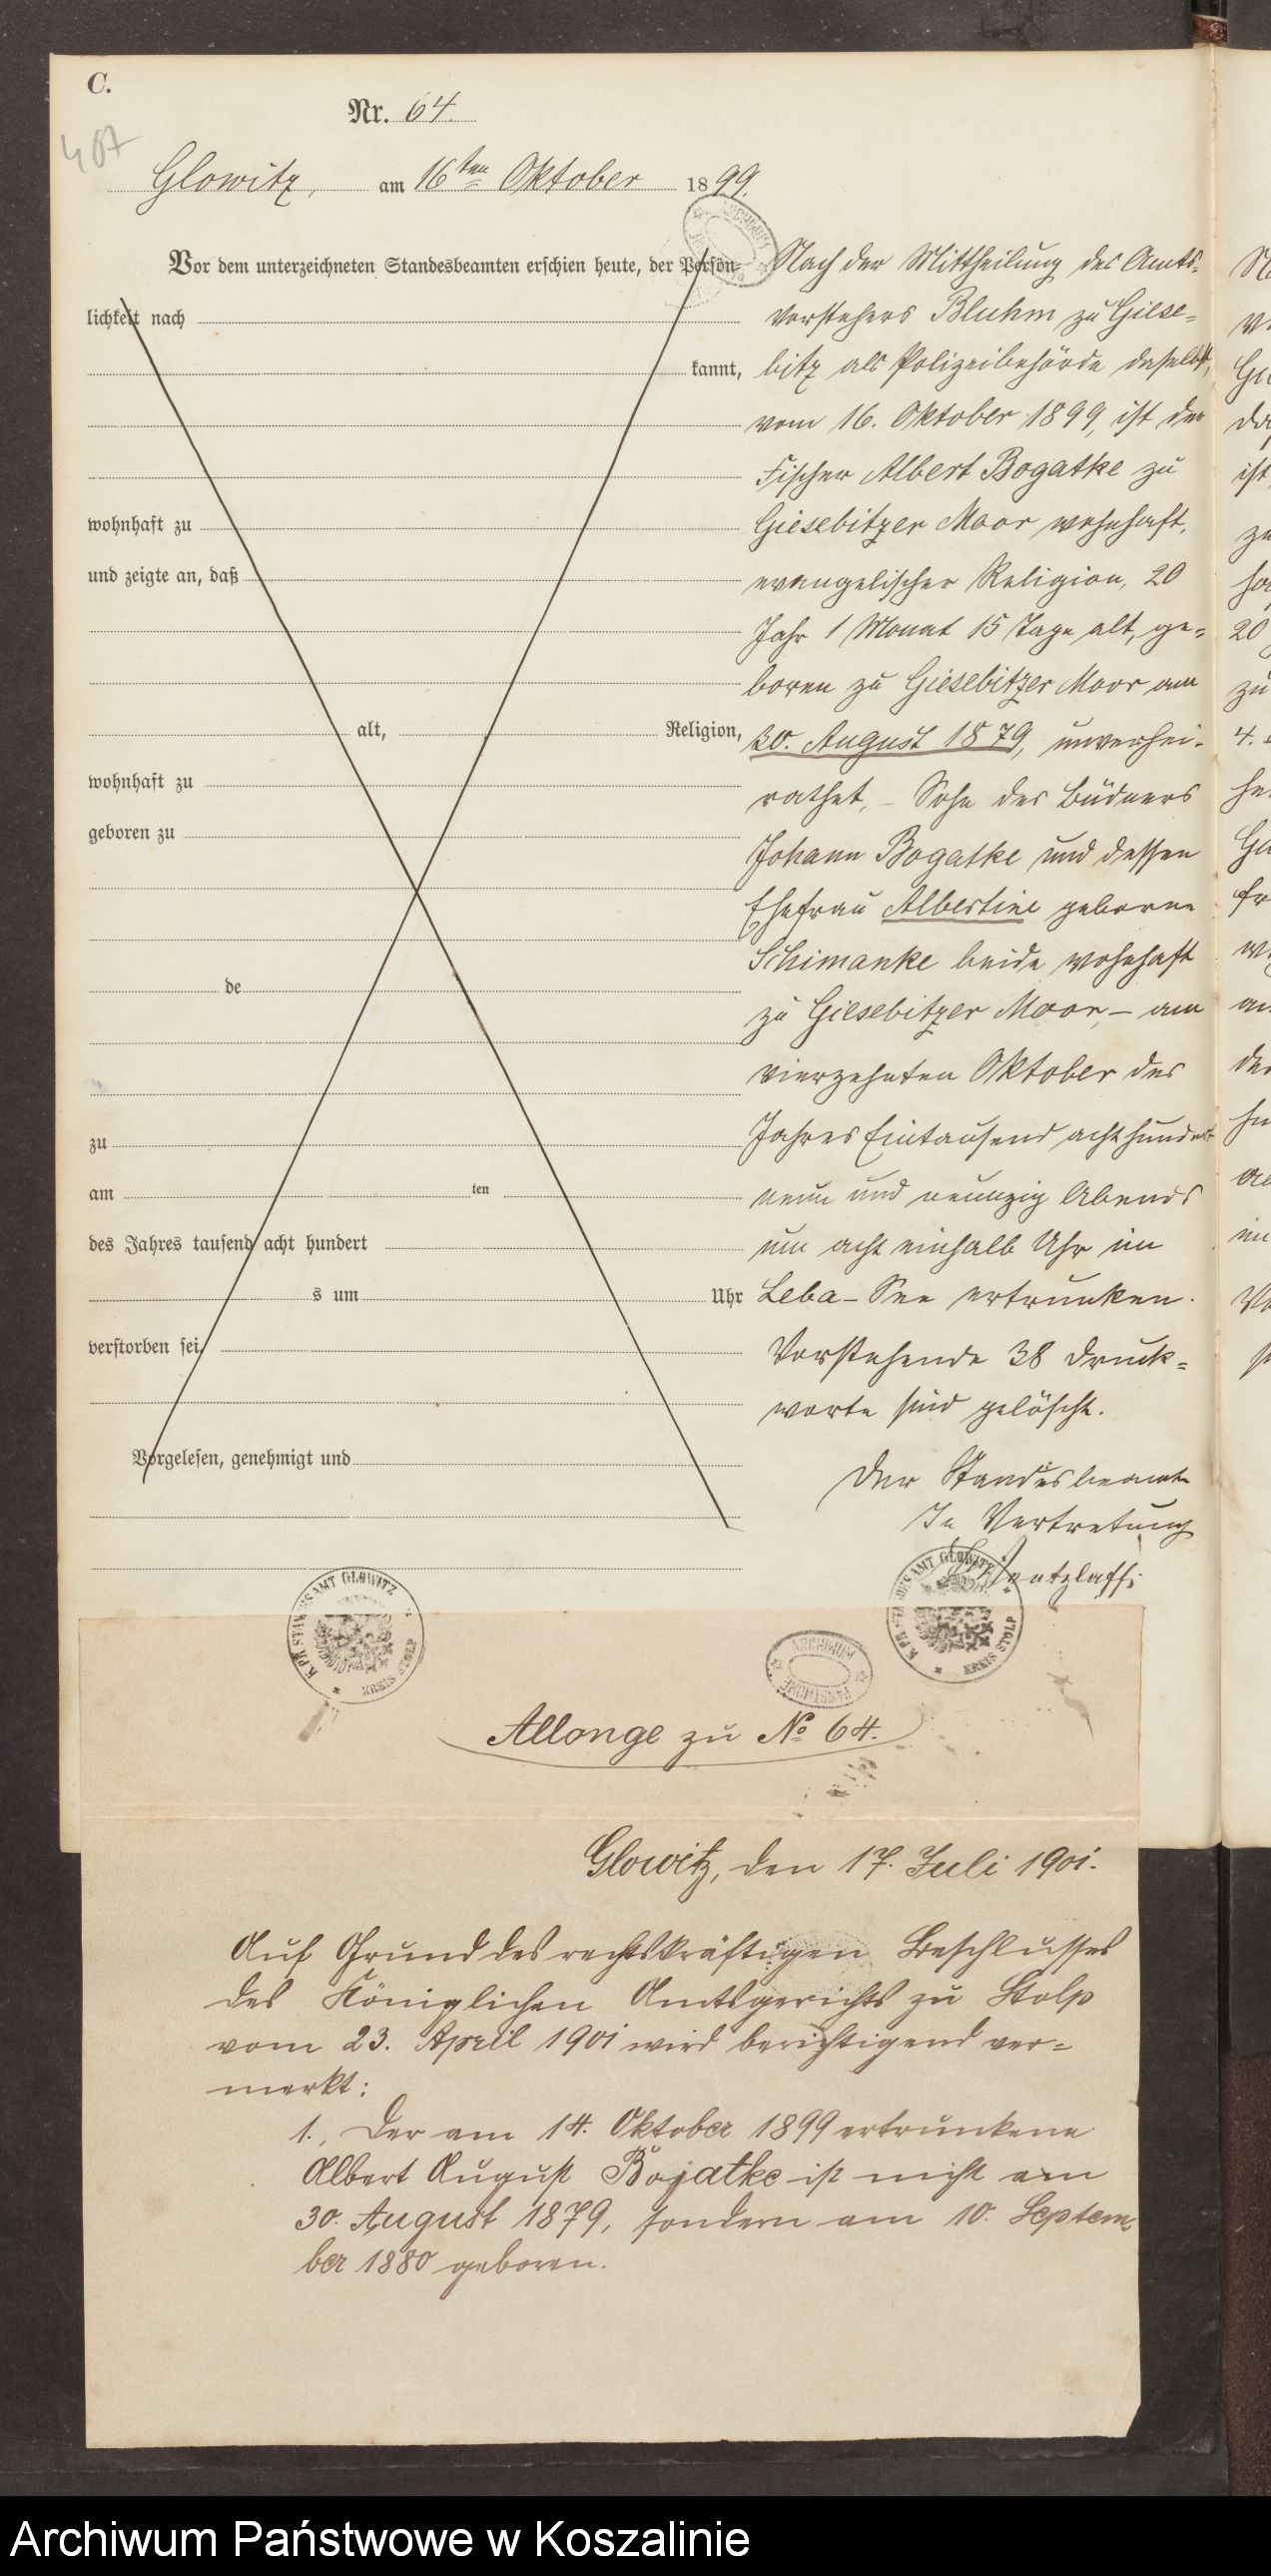 C.
Nr. 64.
487
Glowitz, am 16ten Oktober 1899.
Vor dem unterzeichneten Standesbeamten erschien heute, der Persön-
lichkeit nach
kannt,
wohnhaft zu
und zeigte an, daß
alt, Religion,
wohnhaft zu
geboren zu
de
zu
am ten
des Jahres tausend acht hundert
s um Uhr
verstorben sei
Vorgelesen, genehmigt und
Nach der Mittheilung des Amts-
vorstehers Bluhm zu Giese-
bitz als Polizeibehörde daselbst,
vom 16. Oktober 1899, ist der
Fischer Albert Bogatke zu
Giesebitzer Moor wohnhaft,
evangelischer Religion, 20
Jahr 1 Monat 15 Tage alt, ge-
boren zu Giesebitzer Moor am
30. August 1879, unverhei-
rathet, – Sohn des Büdners
Johann Bogatke und dessen
Ehefrau Albertine geborne
Schimanke beide wohnhaft
zu Giesebitzer Moor, – am
vierzehnten Oktober des
Jahres Eintausend achthundert
neun und neunzig Abends
um acht einhalb Uhr im
Leba-See ertrunken.
Vorstehende 38 Druck-
worte sind gelöscht.
Der Standesbeamte
In Vertretung
K. PR. STANDESAMT GLOWITZ
* KREIS STOLP
K. PR. STANDESAMT GLOWITZ
* KREIS STOLP
ARCHIWUM
PAŃSTWOWE
Allonge zu No 64.
Glowitz, den 17. Juli 1901.
Auf Grund des rechtskräftigen Beschlusses
des Königlichen Amtsgerichts zu Stolp
vom 23. April 1901 wird berichtigend ver-
merkt:
1., Der am 14. Oktober 1899 ertrunkene
Albert August Bojatke ist nicht am
30. August 1879, sondern am 10. Septem-
ber 1880 geboren.
Archiwum Państwowe w Koszalinie